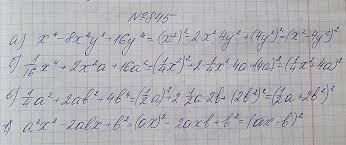 №845
а) x⁴-8x²y²+16y⁴=(x²)²-2x²4y²+(4y²)²=(x²-4y²)²
б) 1/16x⁴+2x²a+16a²=(1/4x²)²+2·1/4x²·4a+(4a)²=(1/4x²+4a)²
в) 1/4a²+2ab²+4b⁴=(1/2a)²+2·1/2a·2b+(2b²)²=(1/2a+2b²)²
г) a²x²-2abx+b²=(ax)²-2axb+b²=(ax-b)²